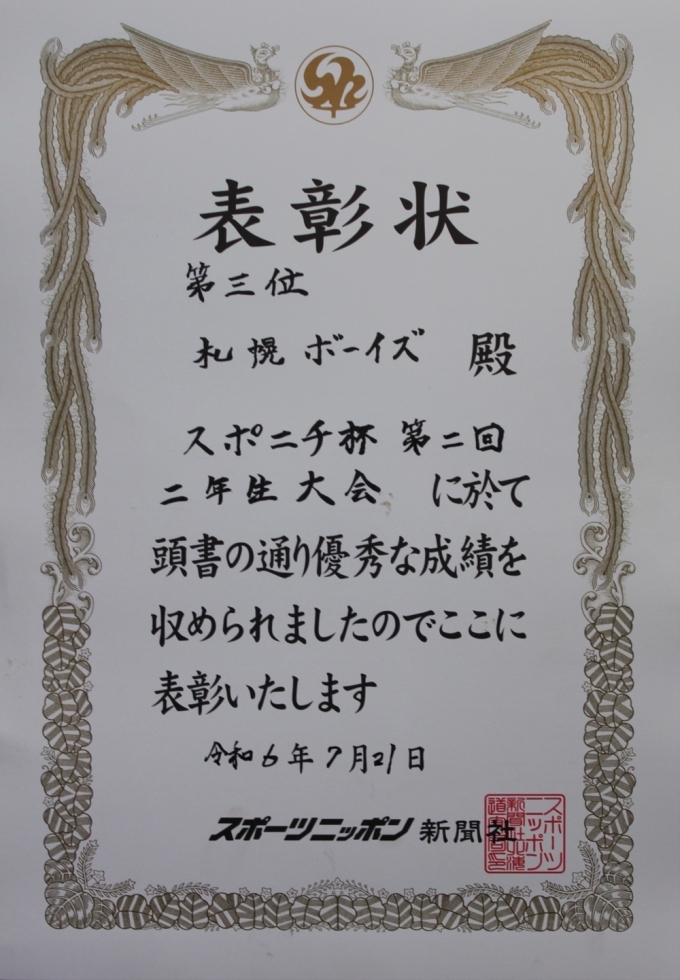 表彰状
第三位
札幌ボーイズ 殿
スポニチ杯 第二回
二年生大会 に於て
頭書の通り優秀な成績を
収められましたのでここに
表彰いたします
令和6年7月21日
スポーツニッポン新聞社
スポーツ
ニッポン